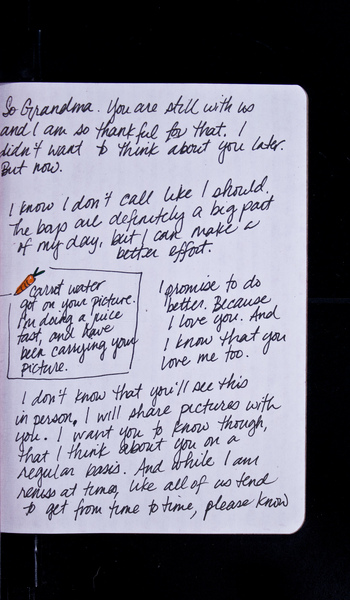 So Grandma. You are still with us
and I am so thankful for that. I
didn't want to think about you later.
But now.
I know I don't call like I should.
The boys are definitely a big part
of my day, but I can make a
better effort.
carrot water
got on your picture.
I'm doing a juice
fast, and have
been carrying your
picture.
I promise to do
better. Because
I love you. And
I know that you
love me too.
I don't know that you'll see this
in person. I will share pictures with
you. I want you to know though,
that I think about you on a
regular basis. And while I am
remiss at times, like all of us tend
to get from time to time, please know